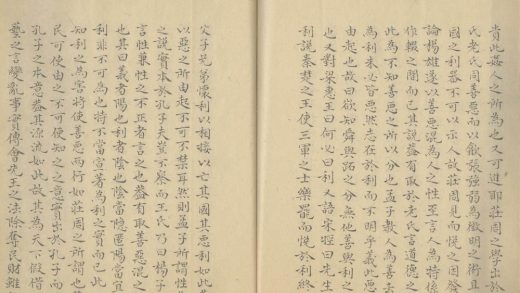 貴此姦人之所為也又可進耶莊周之學出於
氏老氏同善惡而以歙張強弱為微明之術且
國之利器不可以示人故莊周見而悅之因發
論楊雄遂以善惡混為人之性至言人為特係
作報之間而已其說蓋有取於老氏言道德之
此為不知善惡之所以分也孟子教人為善去
為利未必皆惡然志在於利而不明乎義此惡
由起也故曰欲知舜與跖之分無他善與利之
也又對梁惠王曰何必曰利又語宋牼曰先生
利說秦楚之王使三軍之士樂罷而悅於利終
父子兄弟懷利以相接以亡其國其惡利如此
以惡之所由起不可不禁耳然則孟子所謂性
之說實本於孔子夫豈不察而王氏乃曰楊子
言性兼性之不正者言之也蓋有取善惡混之
也其曰義者陽也利者陰也陰當隱匿陽當宜
利非不可為也特不當宣著為利之實而已此
知利之為害將使善惡而行如莊周之所謂也
民可使由之不可使知之之意實出於孔子而
孔子之本意蓋其源流如此故其為天下假借
藝之言變亂事實傅會先王之法除奪民財離